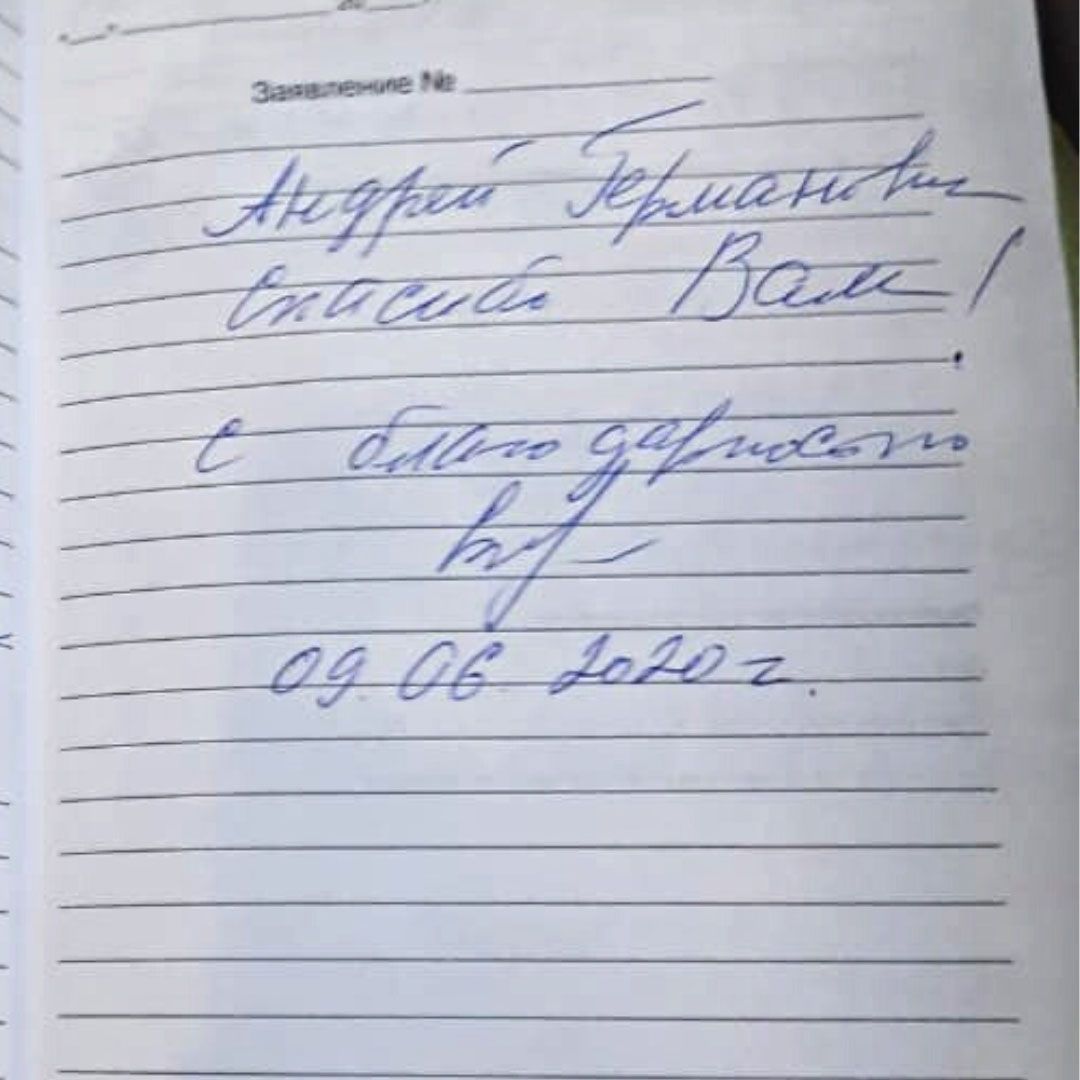 Заявление №
Андрей Германович
Спасибо Вам!
С благодарностью
09.06.2020 г.